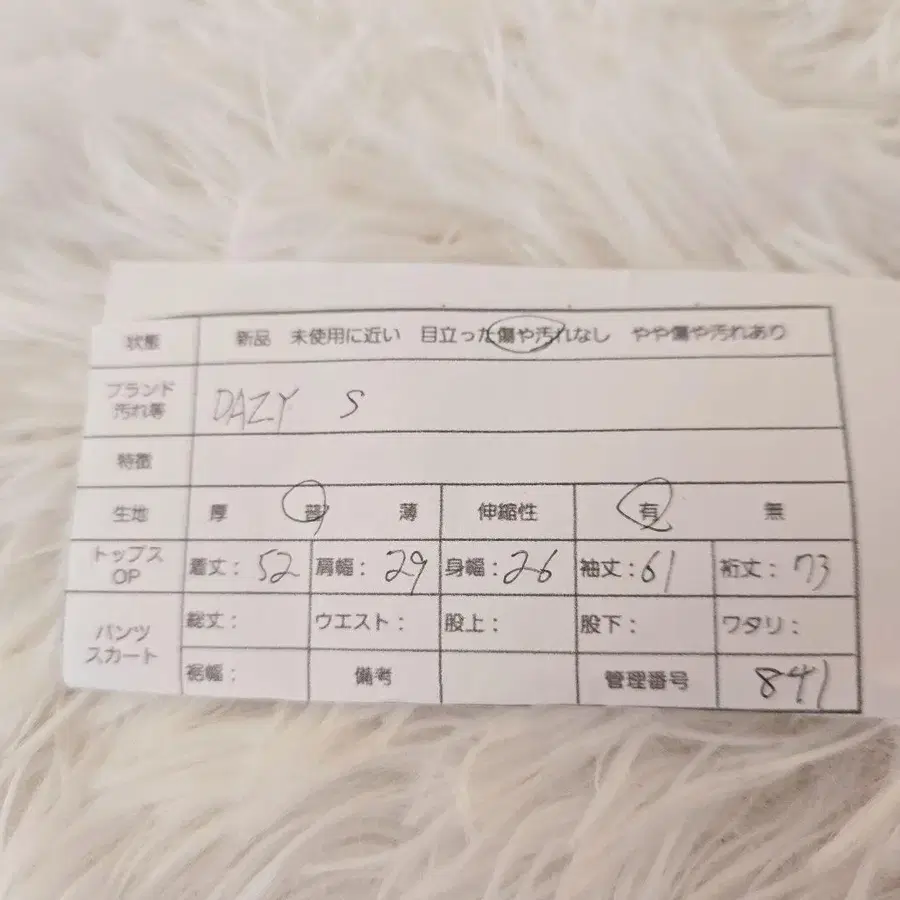 状態 新品 未使用に近い 目立った傷や汚れなし やや傷や汚れあり
ブランド
汚れ等 DAZY S
特徴
生地 厚 普 薄 伸縮性 有 無
トップス
OP 着丈: 52 肩幅: 29 身幅: 26 袖丈: 61 裄丈: 73
パンツ
スカート 総丈: ウエスト: 股上: 股下: ワタリ:
裾幅: 備考 管理番号 841